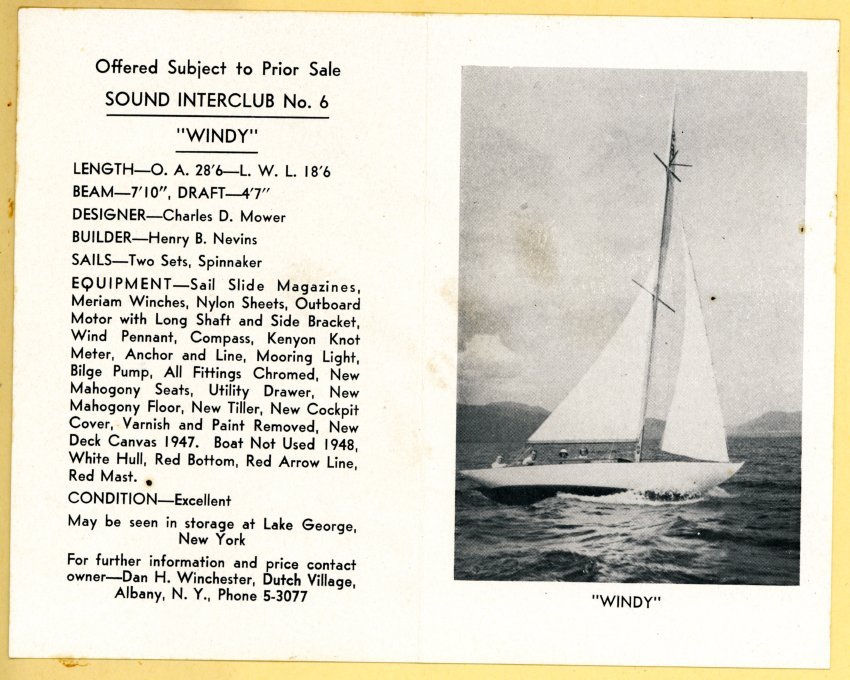 Offered Subject to Prior Sale
SOUND INTERCLUB No. 6
"WINDY"
LENGTH—O. A. 28'6—L. W. L. 18'6
BEAM—7'10", DRAFT—4'7"
DESIGNER—Charles D. Mower
BUILDER—Henry B. Nevins
SAILS—Two Sets, Spinnaker
EQUIPMENT—Sail Slide Magazines,
Meriam Winches, Nylon Sheets, Outboard
Motor with Long Shaft and Side Bracket,
Wind Pennant, Compass, Kenyon Knot
Meter, Anchor and Line, Mooring Light,
Bilge Pump, All Fittings Chromed, New
Mahogony Seats, Utility Drawer, New
Mahogony Floor, New Tiller, New Cockpit
Cover, Varnish and Paint Removed, New
Deck Canvas 1947. Boat Not Used 1948,
White Hull, Red Bottom, Red Arrow Line,
Red Mast.
CONDITION—Excellent
May be seen in storage at Lake George,
New York
For further information and price contact
owner—Dan H. Winchester, Dutch Village,
Albany, N. Y., Phone 5-3077
"WINDY"